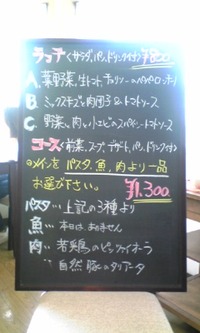 ランチ(サラダ,パン,ドリンク付) ¥800
A. 葉野菜,生トマト,チョリソーのペペロンチーノ
B. ミックスチーズ肉団子&トマトソース
C. 野菜,肉,小エビのスパゲッティトマトソース
コース(前菜,スープ,デザート,パン,ドリンク付)
◎メインを パスタ,魚,肉より一品
お選び下さい。 ¥1,300
パスタ… 上記の3種より
魚… 本日はありません
肉… 若鶏のピッツァイオーラ
自然豚のタリアータ